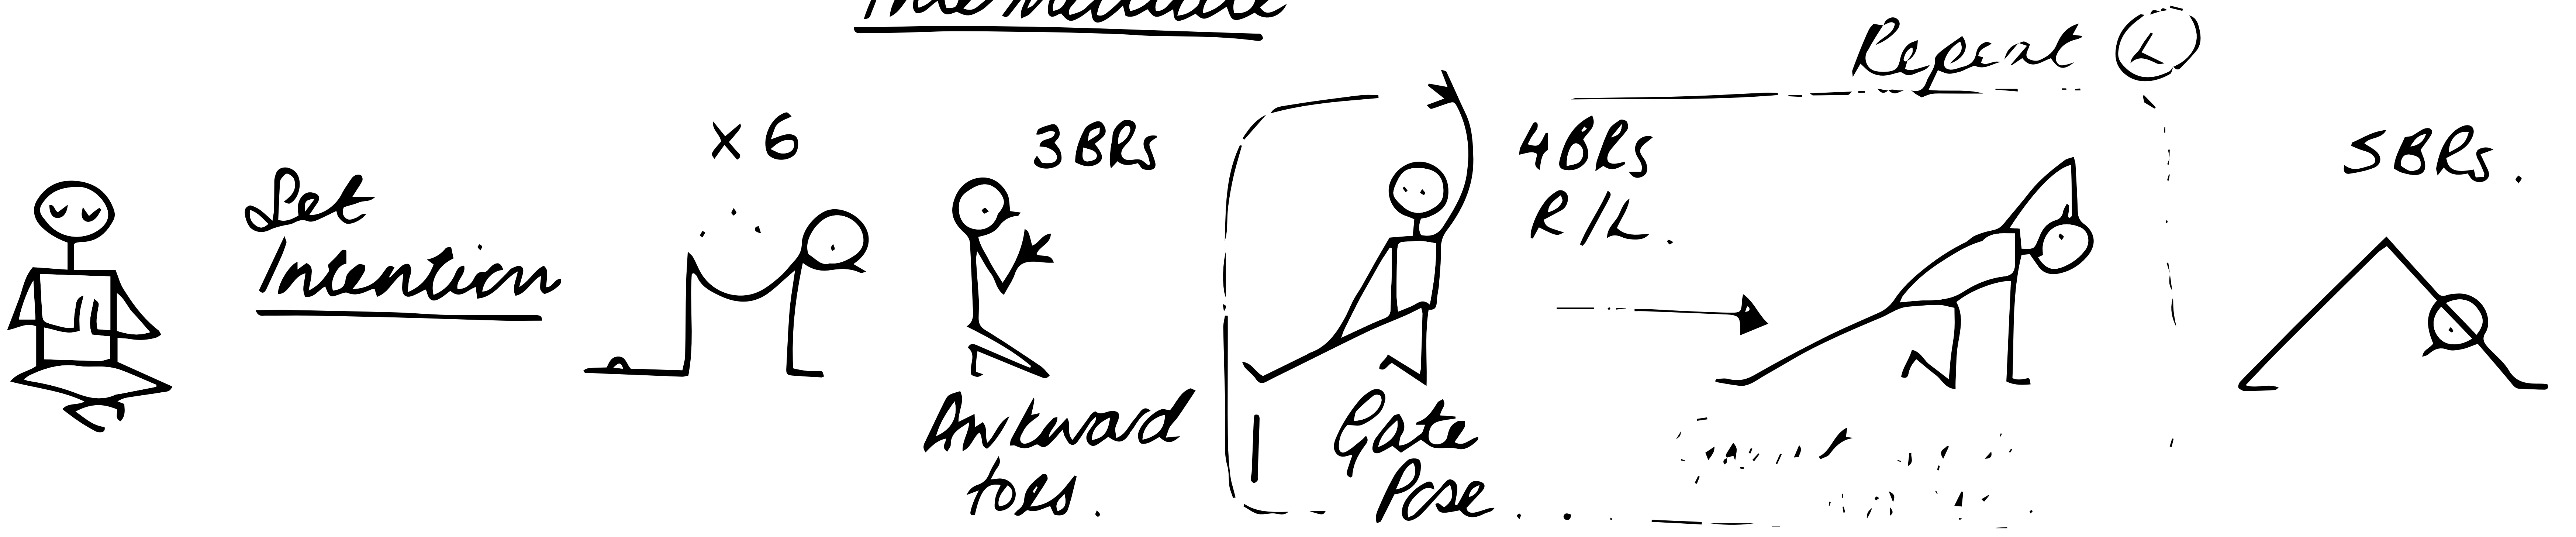 Intermediate
Repeat Ⓛ
Set
Intention
x 6
3 BRs
Awkward
toes.
4BRs
R/L.
Gate
Pose
5 BRs.